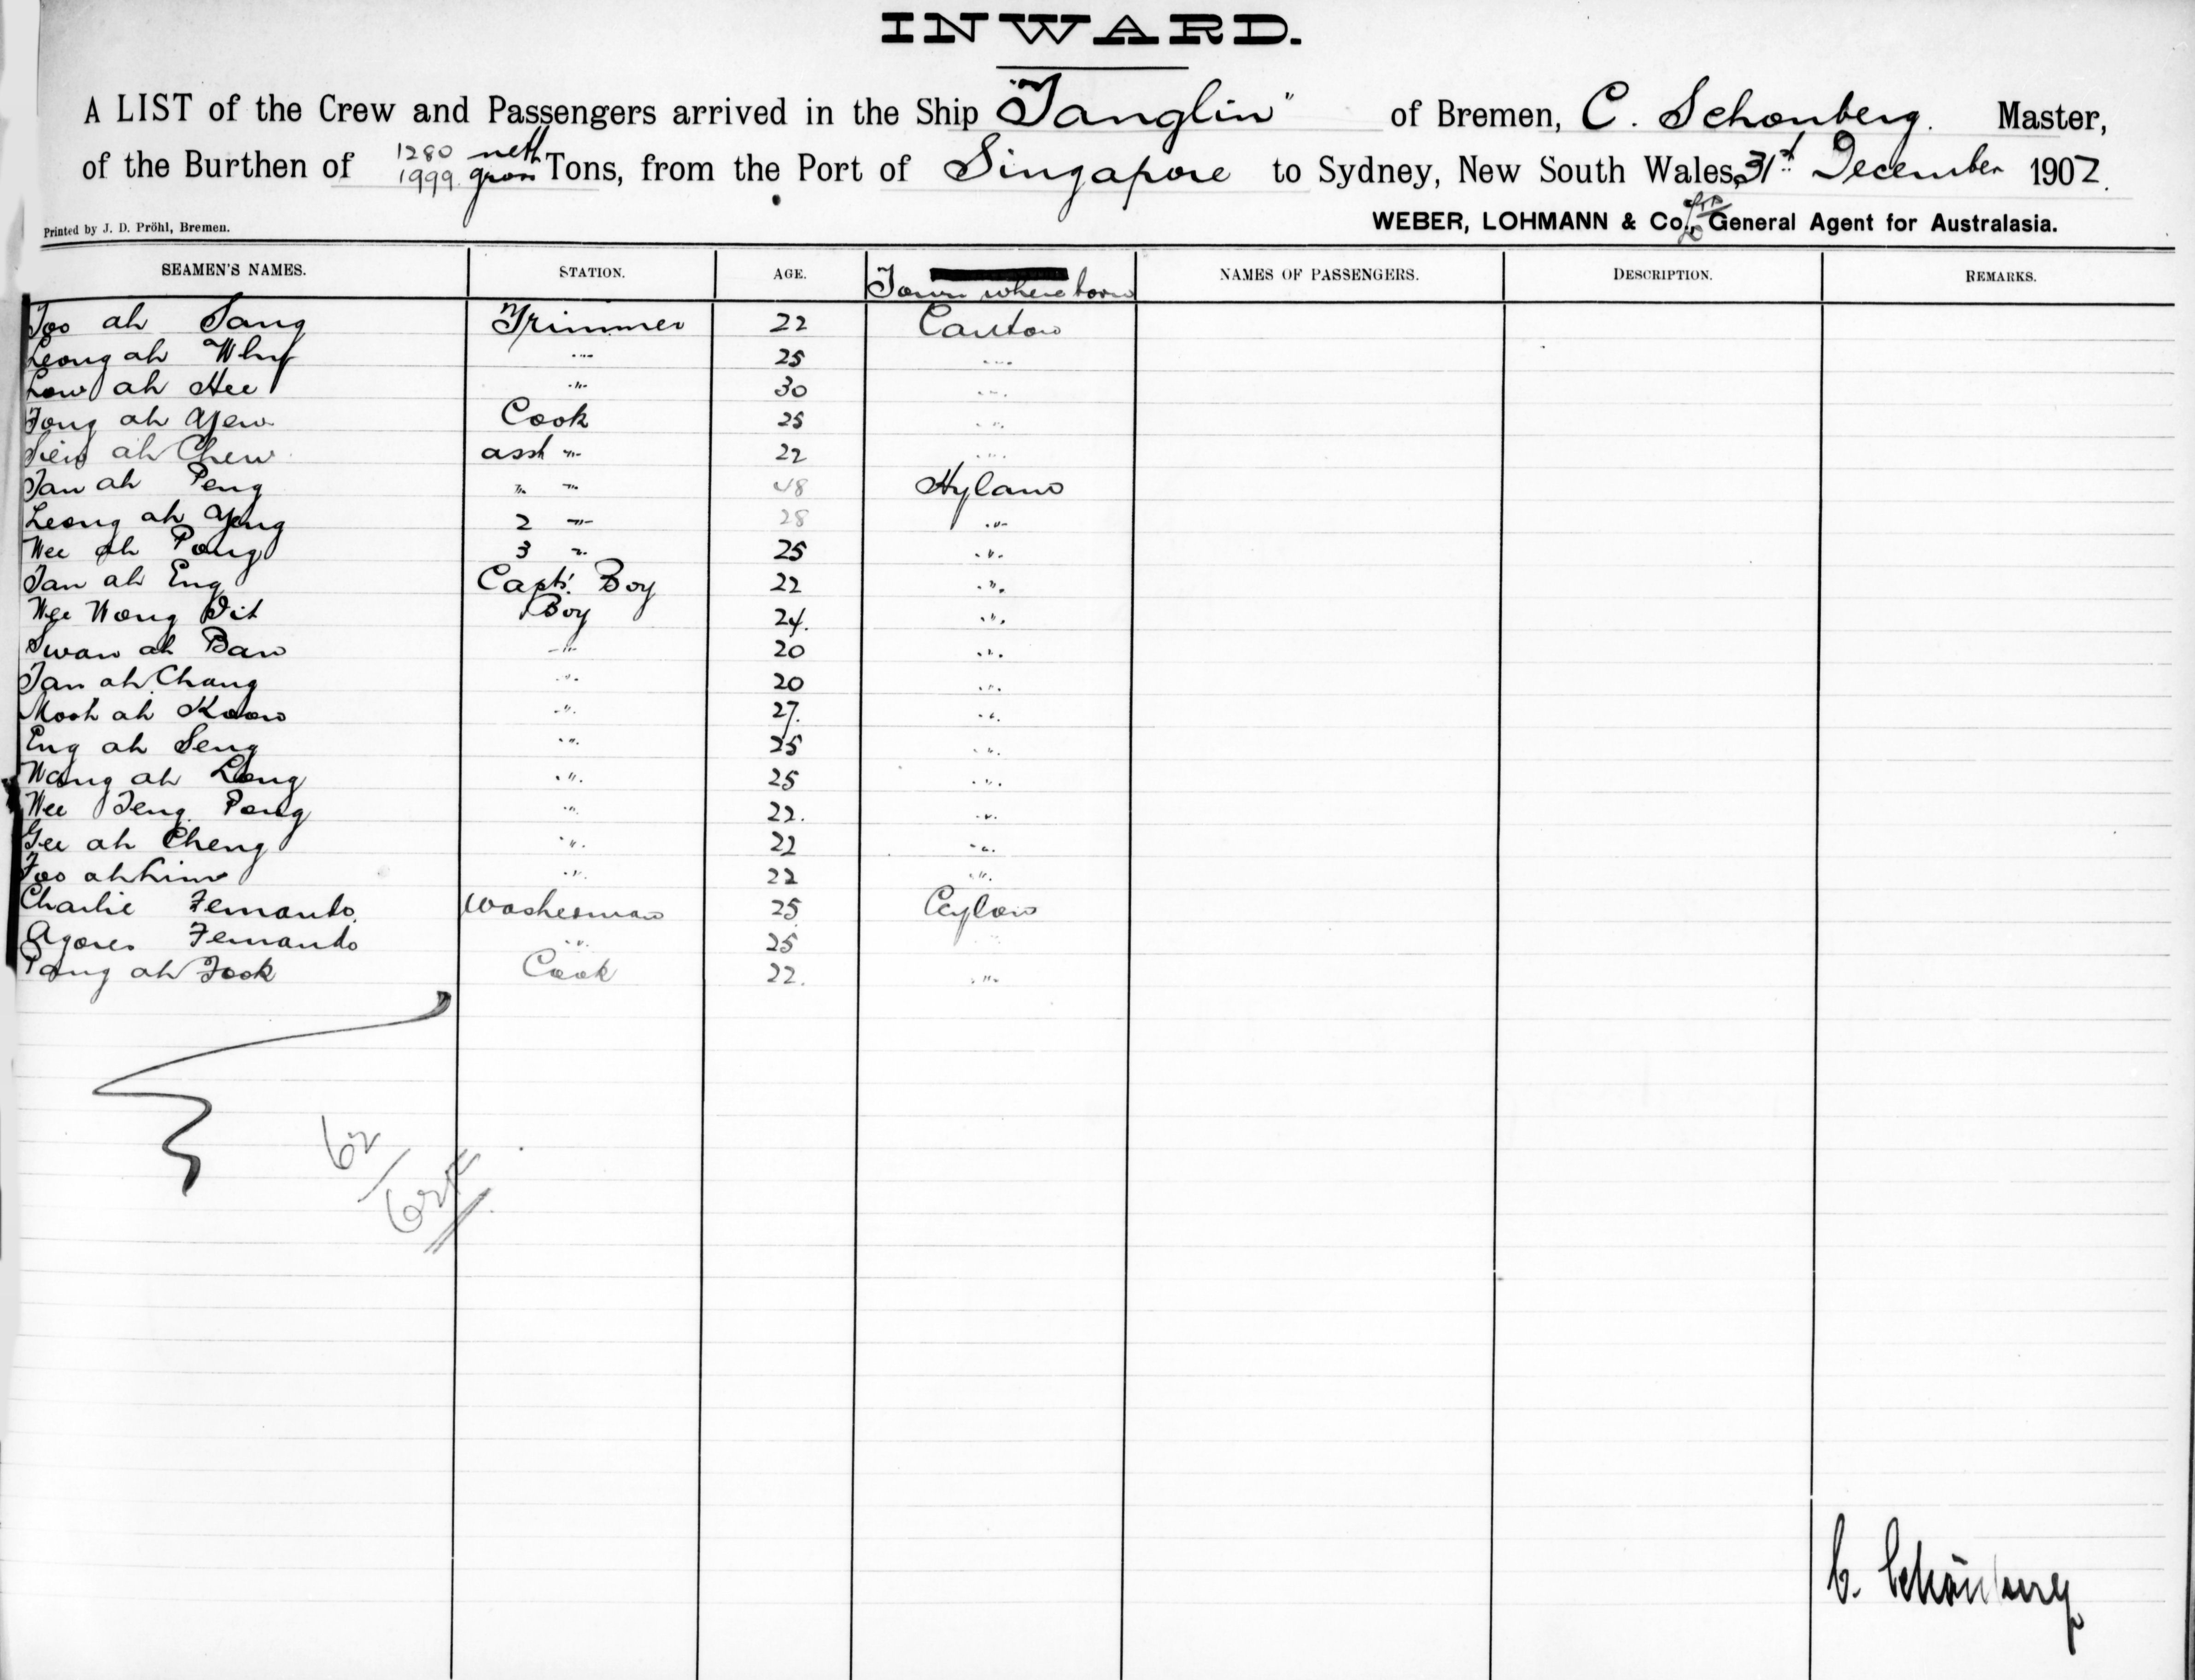 INWARD.
A LIST of the Crew and Passengers arrived in the Ship "Tanglin" of Bremen, C. Schonberg. Master,
of the Burthen of 1280 nett 1999 gross Tons, from the Port of Singapore to Sydney, New South Wales, 31st December 1902.
Printed by J. D. Pröhl, Bremen.
WEBER, LOHMANN & Co., General Agent for Australasia.
SEAMEN'S NAMES. STATION. AGE. Town where born NAMES OF PASSENGERS. DESCRIPTION. REMARKS.
ah Sang Trimmer 22 Canton
Leong ah " 25 "
Low ah Hee " 30 "
Fong ah Yew Cook 25 "
ah Chew asst " 22 "
Tan ah Peng " " 48 Hylam
Leong ah 2 " 28 "
Wee ah Pong 3 " 25 "
Tan ah Eng Capts' Boy 22 "
Wee Wong Boy 24. "
Swan ah Ban " 20 "
Tan ah Chang " 20 "
ah " 27. "
Eng ah Seng " 25 "
Wang ah Long " 25 "
Wee Teng Pong " 22. "
Gee ah Cheng " 22 "
Foo ah " 22 "
Charlie Fernando. Washerman 25 Ceylon
Fernando " 25 "
ah Fook Cook 22. "
62
C. Schönberg